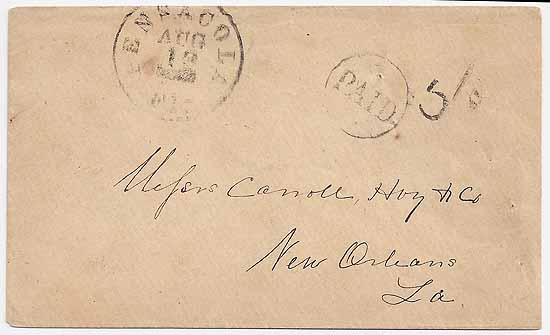 PENSACOLA
AUG
13
PAID
5
Messrs Carroll, Hoy & Co
New Orleans
La